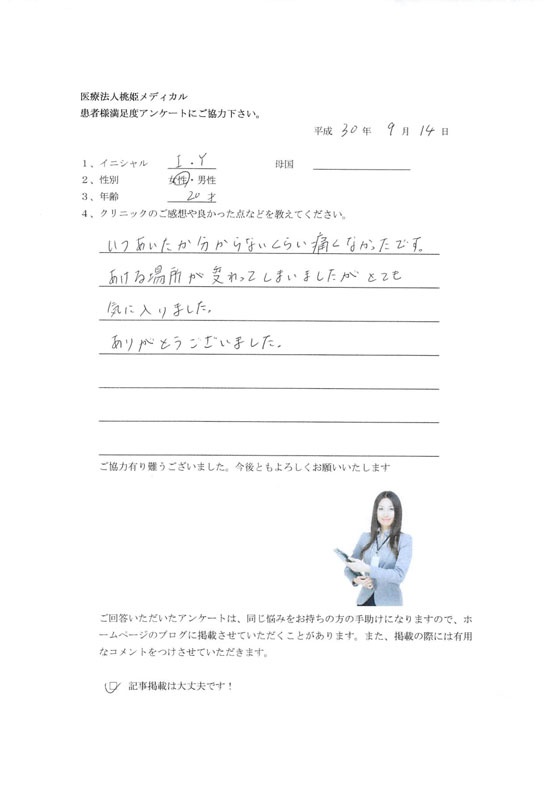 医療法人桃姫メディカル
患者様満足度アンケートにご協力下さい。
平成 30 年 9 月 14 日
1、イニシャル I.Y 母国
2、性別 女性・男性
3、年齢 20才
4、クリニックのご感想や良かった点などを教えてください。
いつあいたか分からないくらい痛くなかったです。
あける場所が変わってしまいましたがとても
気に入りました。
ありがとうございました。
ご協力有り難うございました。今後ともよろしくお願いいたします
ご回答いただいたアンケートは、同じ悩みをお持ちの方の手助けになりますので、ホ
ームページのブログに掲載させていただくことがあります。また、掲載の際には有用
なコメントをつけさせていただきます。
□ 記事掲載は大丈夫です！